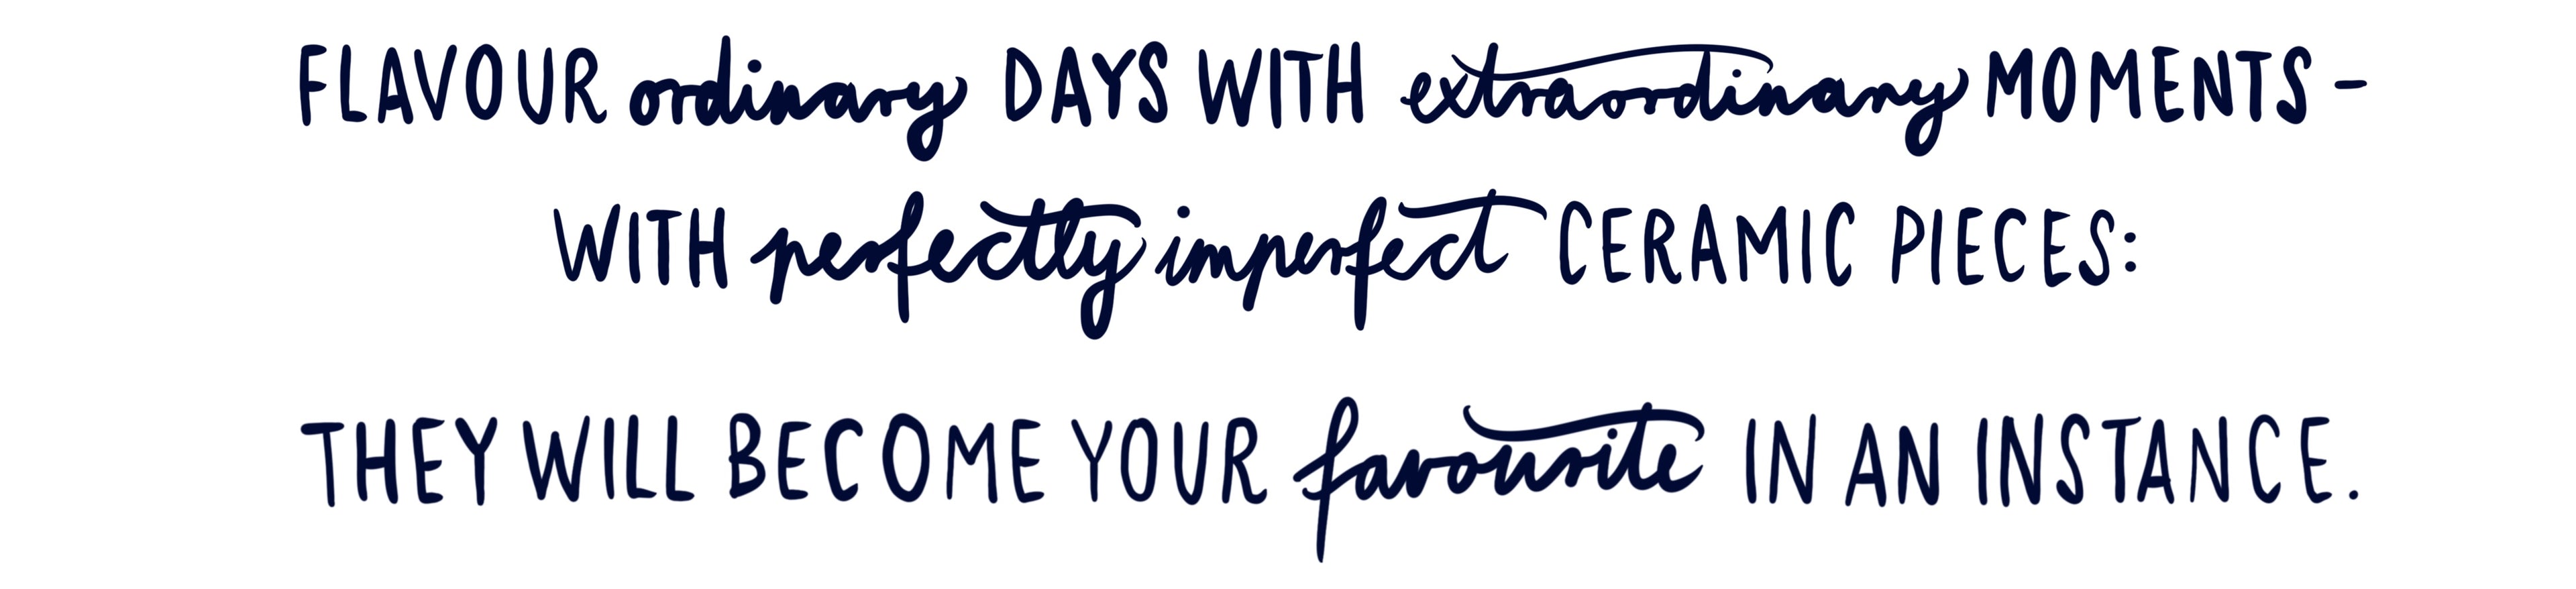 FLAVOUR ordinary DAYS WITH extraordinary MOMENTS -
WITH perfectly imperfect CERAMIC PIECES:
THEY WILL BECOME YOUR favourite IN AN INSTANCE.